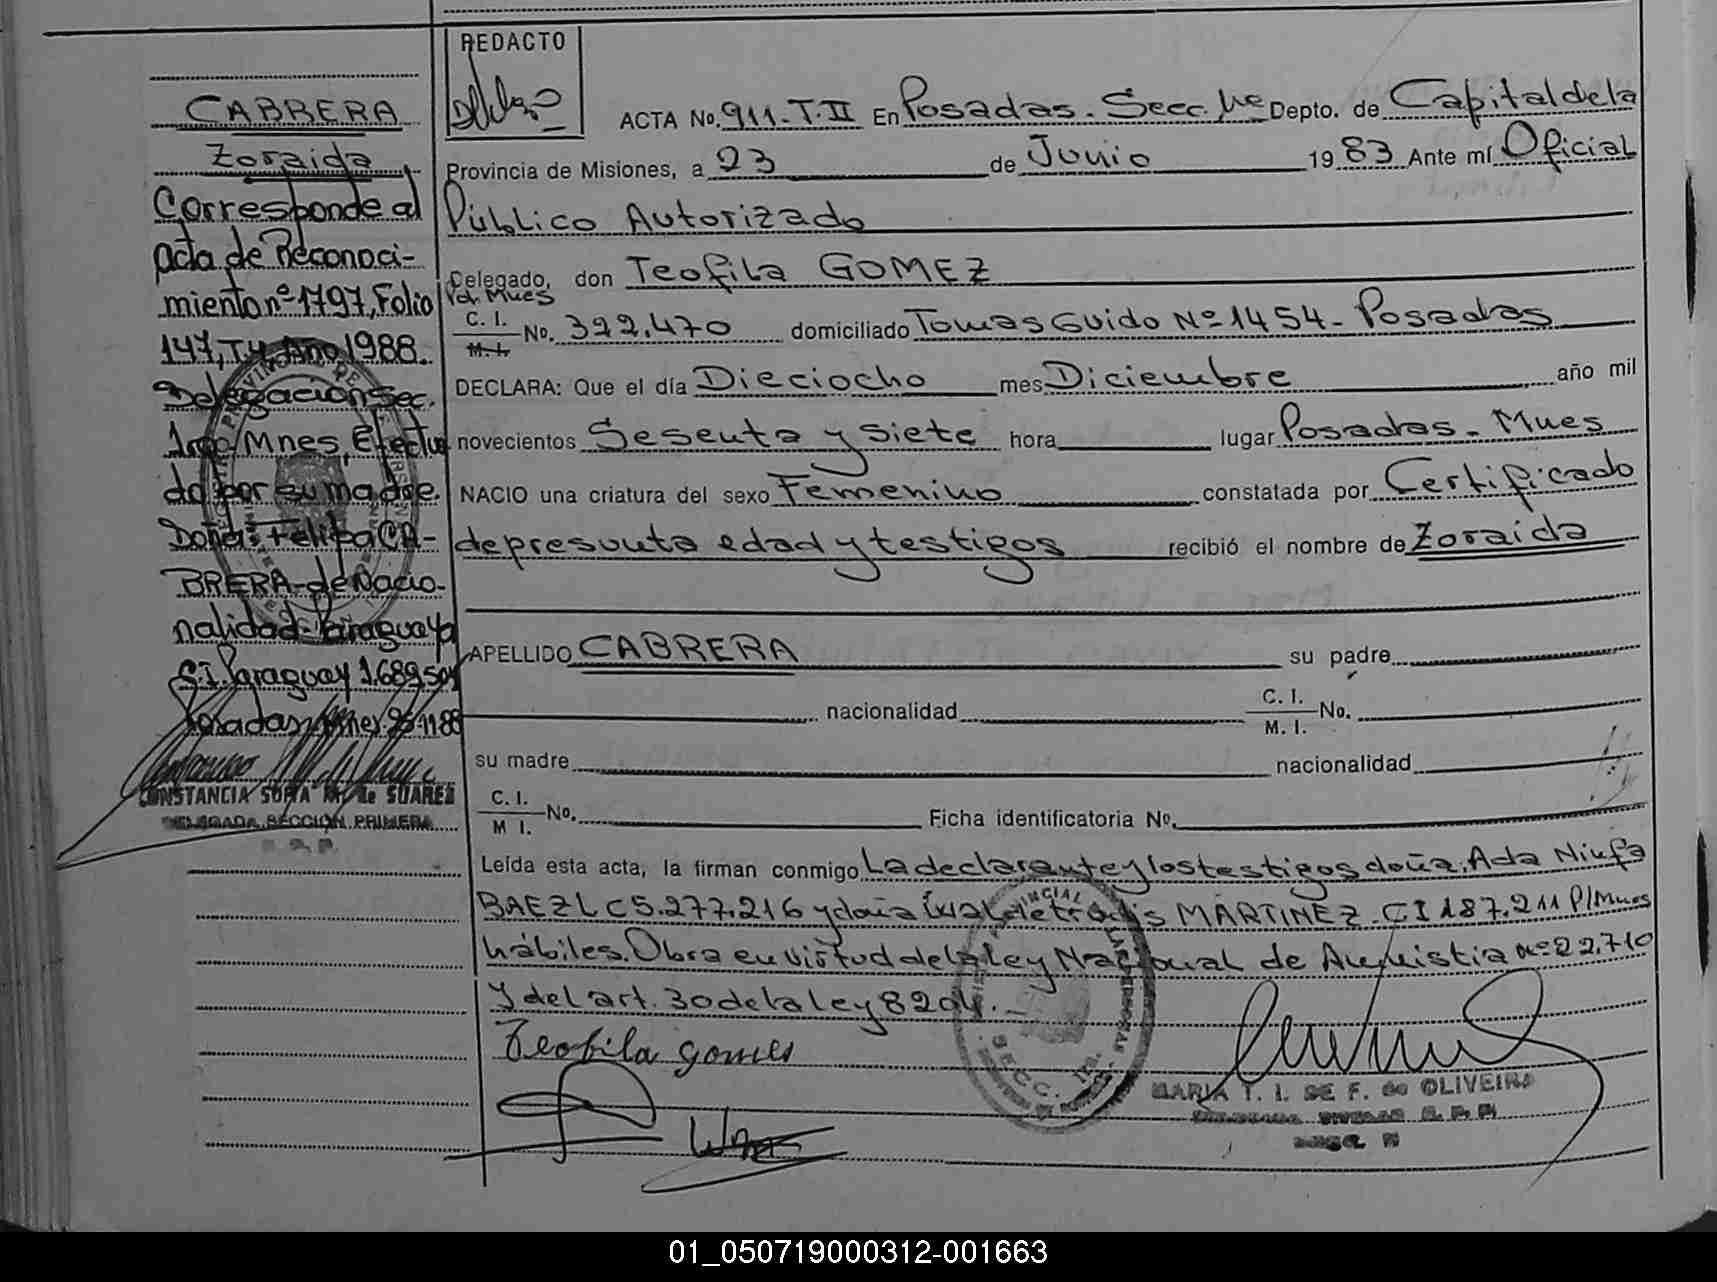 CABRERA
Zoraida
Corresponde al
acta de Reconoci-
miento nº 1797, Folio
147, T4, Año 1988.
Delegación Sec.
1ra Mnes, Efectua
do por su madre.
Doña: Felipa CA-
BRERA - de Nacio-
nalidad: Paraguaya
C.I. Paraguay 1.689.501
Posadas Mnes. 25-11-88
CONSTANCIA SOFIA M. de SUAREZ
DELEGADA SECCION PRIMERA
R. P. P.
REDACTO
ACTA No. 911-T.II En Posadas. Secc. 1ra Depto. de Capital de la
Provincia de Misiones, a 23 de Junio 1983 Ante mí Oficial
Público Autorizado
Delegado, don Teofila GOMEZ
Pol. Mnes
C. I.
M. I. No. 392.470 domiciliado Tomas Guido Nº 1454- Posadas
DECLARA: Que el día Dieciocho mes Diciembre año mil
novecientos Sesenta y siete hora lugar Posadas - Mnes
NACIO una criatura del sexo Femenino constatada por Certificado
de presunta edad y testigos recibió el nombre de Zoraida
APELLIDO CABRERA su padre
nacionalidad C. I.
M. I. No.
su madre nacionalidad
C. I.
M I. No. Ficha identificatoria No.
Leída esta acta, la firman conmigo La declarante y los testigos doña: Ada Ninfa
BAEZ L C 5.277.216 y doña MARTINEZ. CI 187.211 P/Mnes
hábiles. Obra en virtud de la ley Nacional de Amnistia nº 22.710
y del art. 30 de la ley 8204.-
Teofila gomes
MARIA T. I. DE F. de OLIVEIRA
01_050719000312-001663